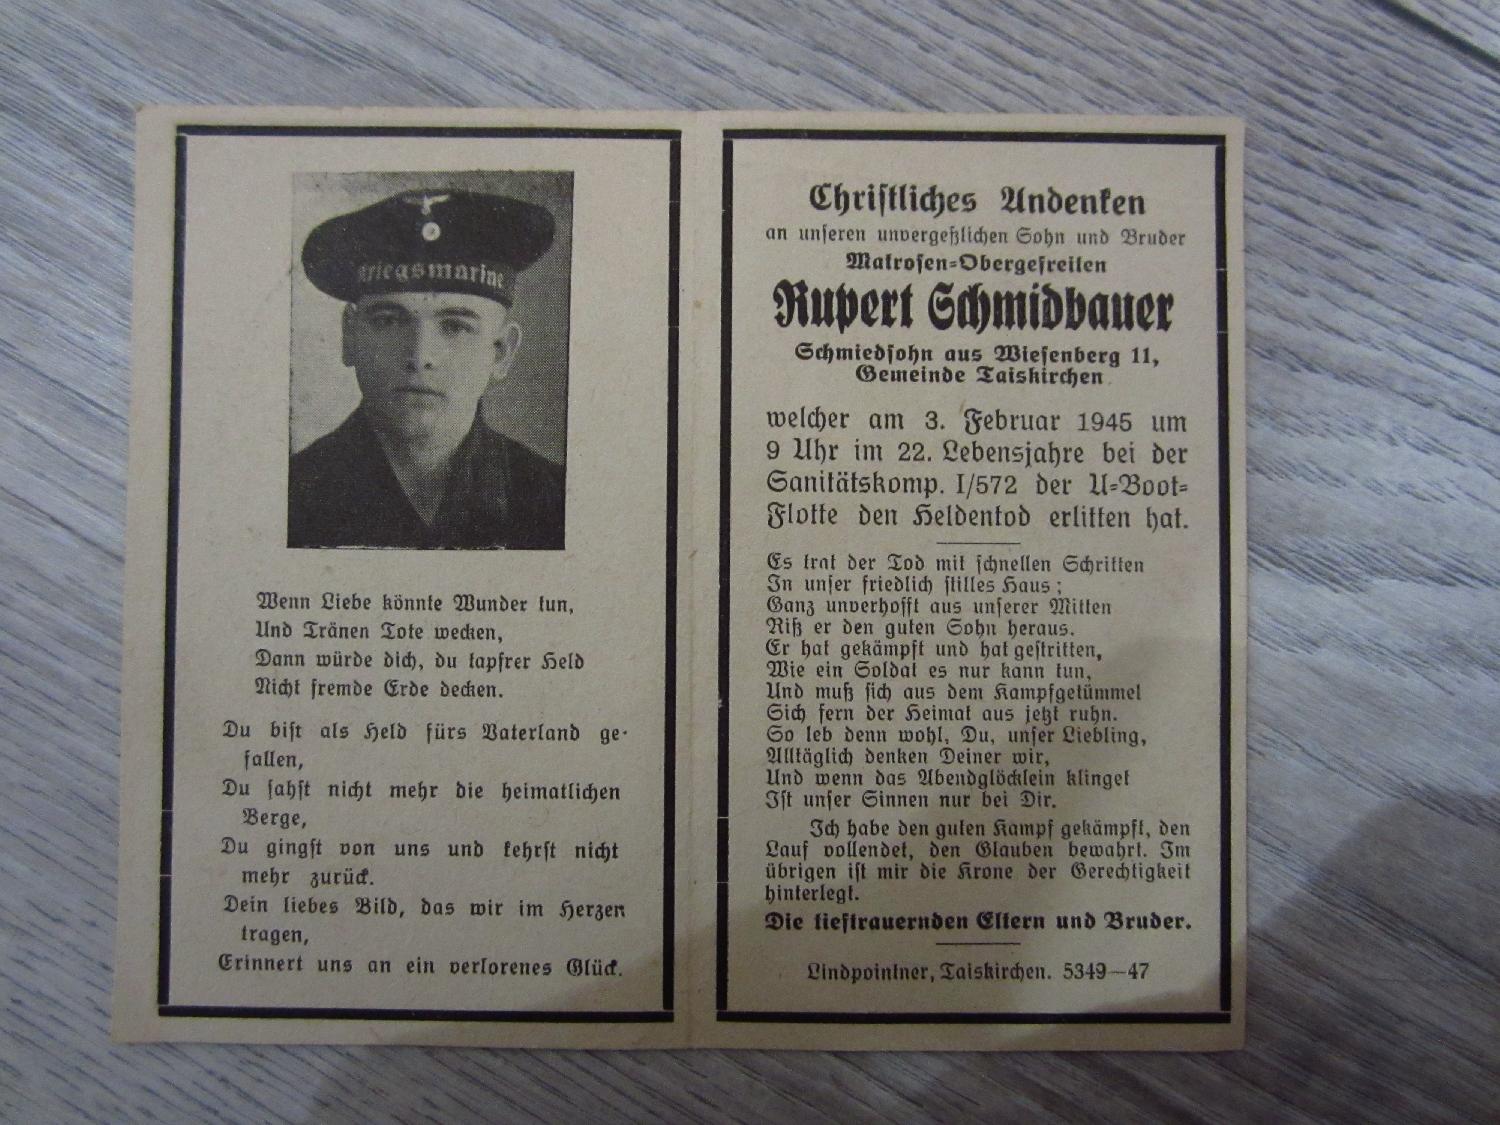 Kriegsmarine
Wenn Liebe könnte Wunder tun,
Und Tränen Tote wecken,
Dann würde dich, du tapfrer Held
Nicht fremde Erde decken.
Du bist als Held fürs Vaterland ge-
fallen,
Du sahst nicht mehr die heimatlichen
Berge,
Du gingst von uns und kehrst nicht
mehr zurück.
Dein liebes Bild, das wir im Herzen
tragen,
Erinnert uns an ein verlorenes Glück.
Christliches Andenken
an unseren unvergeßlichen Sohn und Bruder
Matrosen-Obergefreiten
Rupert Schmidbauer
Schmiedsohn aus Wiesenberg 11,
Gemeinde Taiskirchen
welcher am 3. Februar 1945 um
9 Uhr im 22. Lebensjahre bei der
Sanitätskomp. I/572 der U-Boot-
Flotte den Heldentod erlitten hat.
Es trat der Tod mit schnellen Schritten
In unser friedlich stilles Haus;
Ganz unverhofft aus unserer Mitten
Riß er den guten Sohn heraus.
Er hat gekämpft und hat gestritten,
Wie ein Soldat es nur kann tun,
Und muß sich aus dem Kampfgetümmel
Sich fern der Heimat aus jetzt ruhn.
So leb denn wohl, Du, unser Liebling,
Alltäglich denken Deiner wir,
Und wenn das Abendglöcklein klinget
Ist unser Sinnen nur bei Dir.
Ich habe den guten Kampf gekämpft, den
Lauf vollendet, den Glauben bewahrt. Im
übrigen ist mir die Krone der Gerechtigkeit
hinterlegt.
Die tieftrauernden Eltern und Bruder.
Lindpointner, Taiskirchen. 5349—47